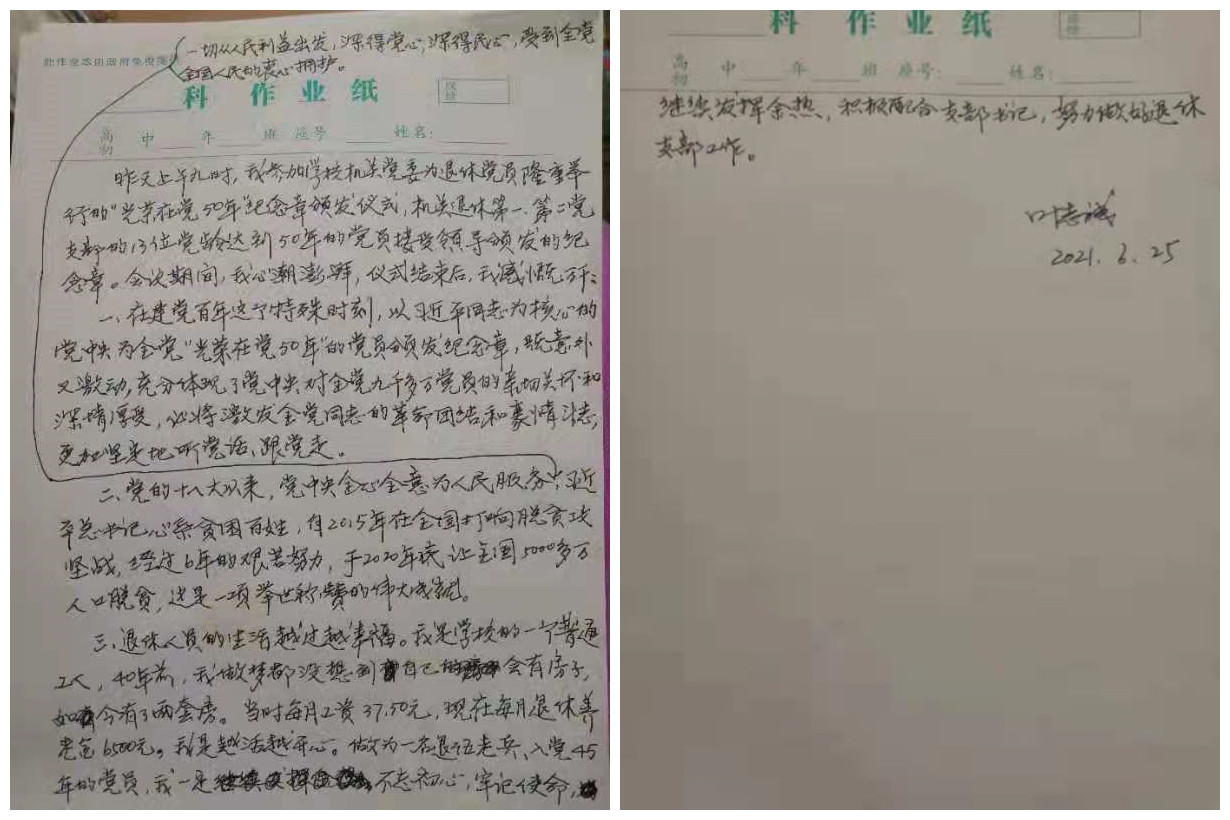 一切从人民利益出发，深得党心，深得民心，受到全党
全国人民的衷心拥护。
此作业本由政府免费提供
科 作 业 纸
高
初 中 年 班 座号 姓名：
昨天上午九时，我参加学校机关党委为退休党员隆重举
行的“光荣在党50年”纪念章颁发仪式，机关退休第一、第二党
支部的13位党龄达到50年的党员接受领导颁发的纪
念章。会议期间，我心潮澎湃，仪式结束后，我感慨万千：
一、在建党百年这个特殊时刻，以习近平同志为核心的
党中央为全党“光荣在党50年”的党员颁发纪念章，既意外
又激动，充分体现了党中央对全党九千多万党员的亲切关怀和
深情厚爱，必将激发全党同志的革命团结和豪情斗志，
更加坚定地听党话、跟党走。
二、党的十八大以来，党中央全心全意为人民服务，习近
平总书记心系贫困百姓，自2015年在全国打响脱贫攻
坚战，经过6年的艰苦努力，于2020年底让全国5000多万
人口脱贫，这是一项举世称赞的伟大成就。
三、退休人员的生活越过越幸福。我是学校的一个普通
工人，40年前，我做梦都没想到自己会有房子，
如今有了两套房。当时每月工资37.50元，现在每月退休养
老金6500元。我是越活越开心。做为一名退伍老兵、入党45
年的党员，我一定不忘初心，牢记使命，
科 作 业 纸
高
初 中 年 班 座号： 姓名：
继续发挥余热，积极配合支部书记，努力做好退休
支部工作。
叶志诚
2021.6.25